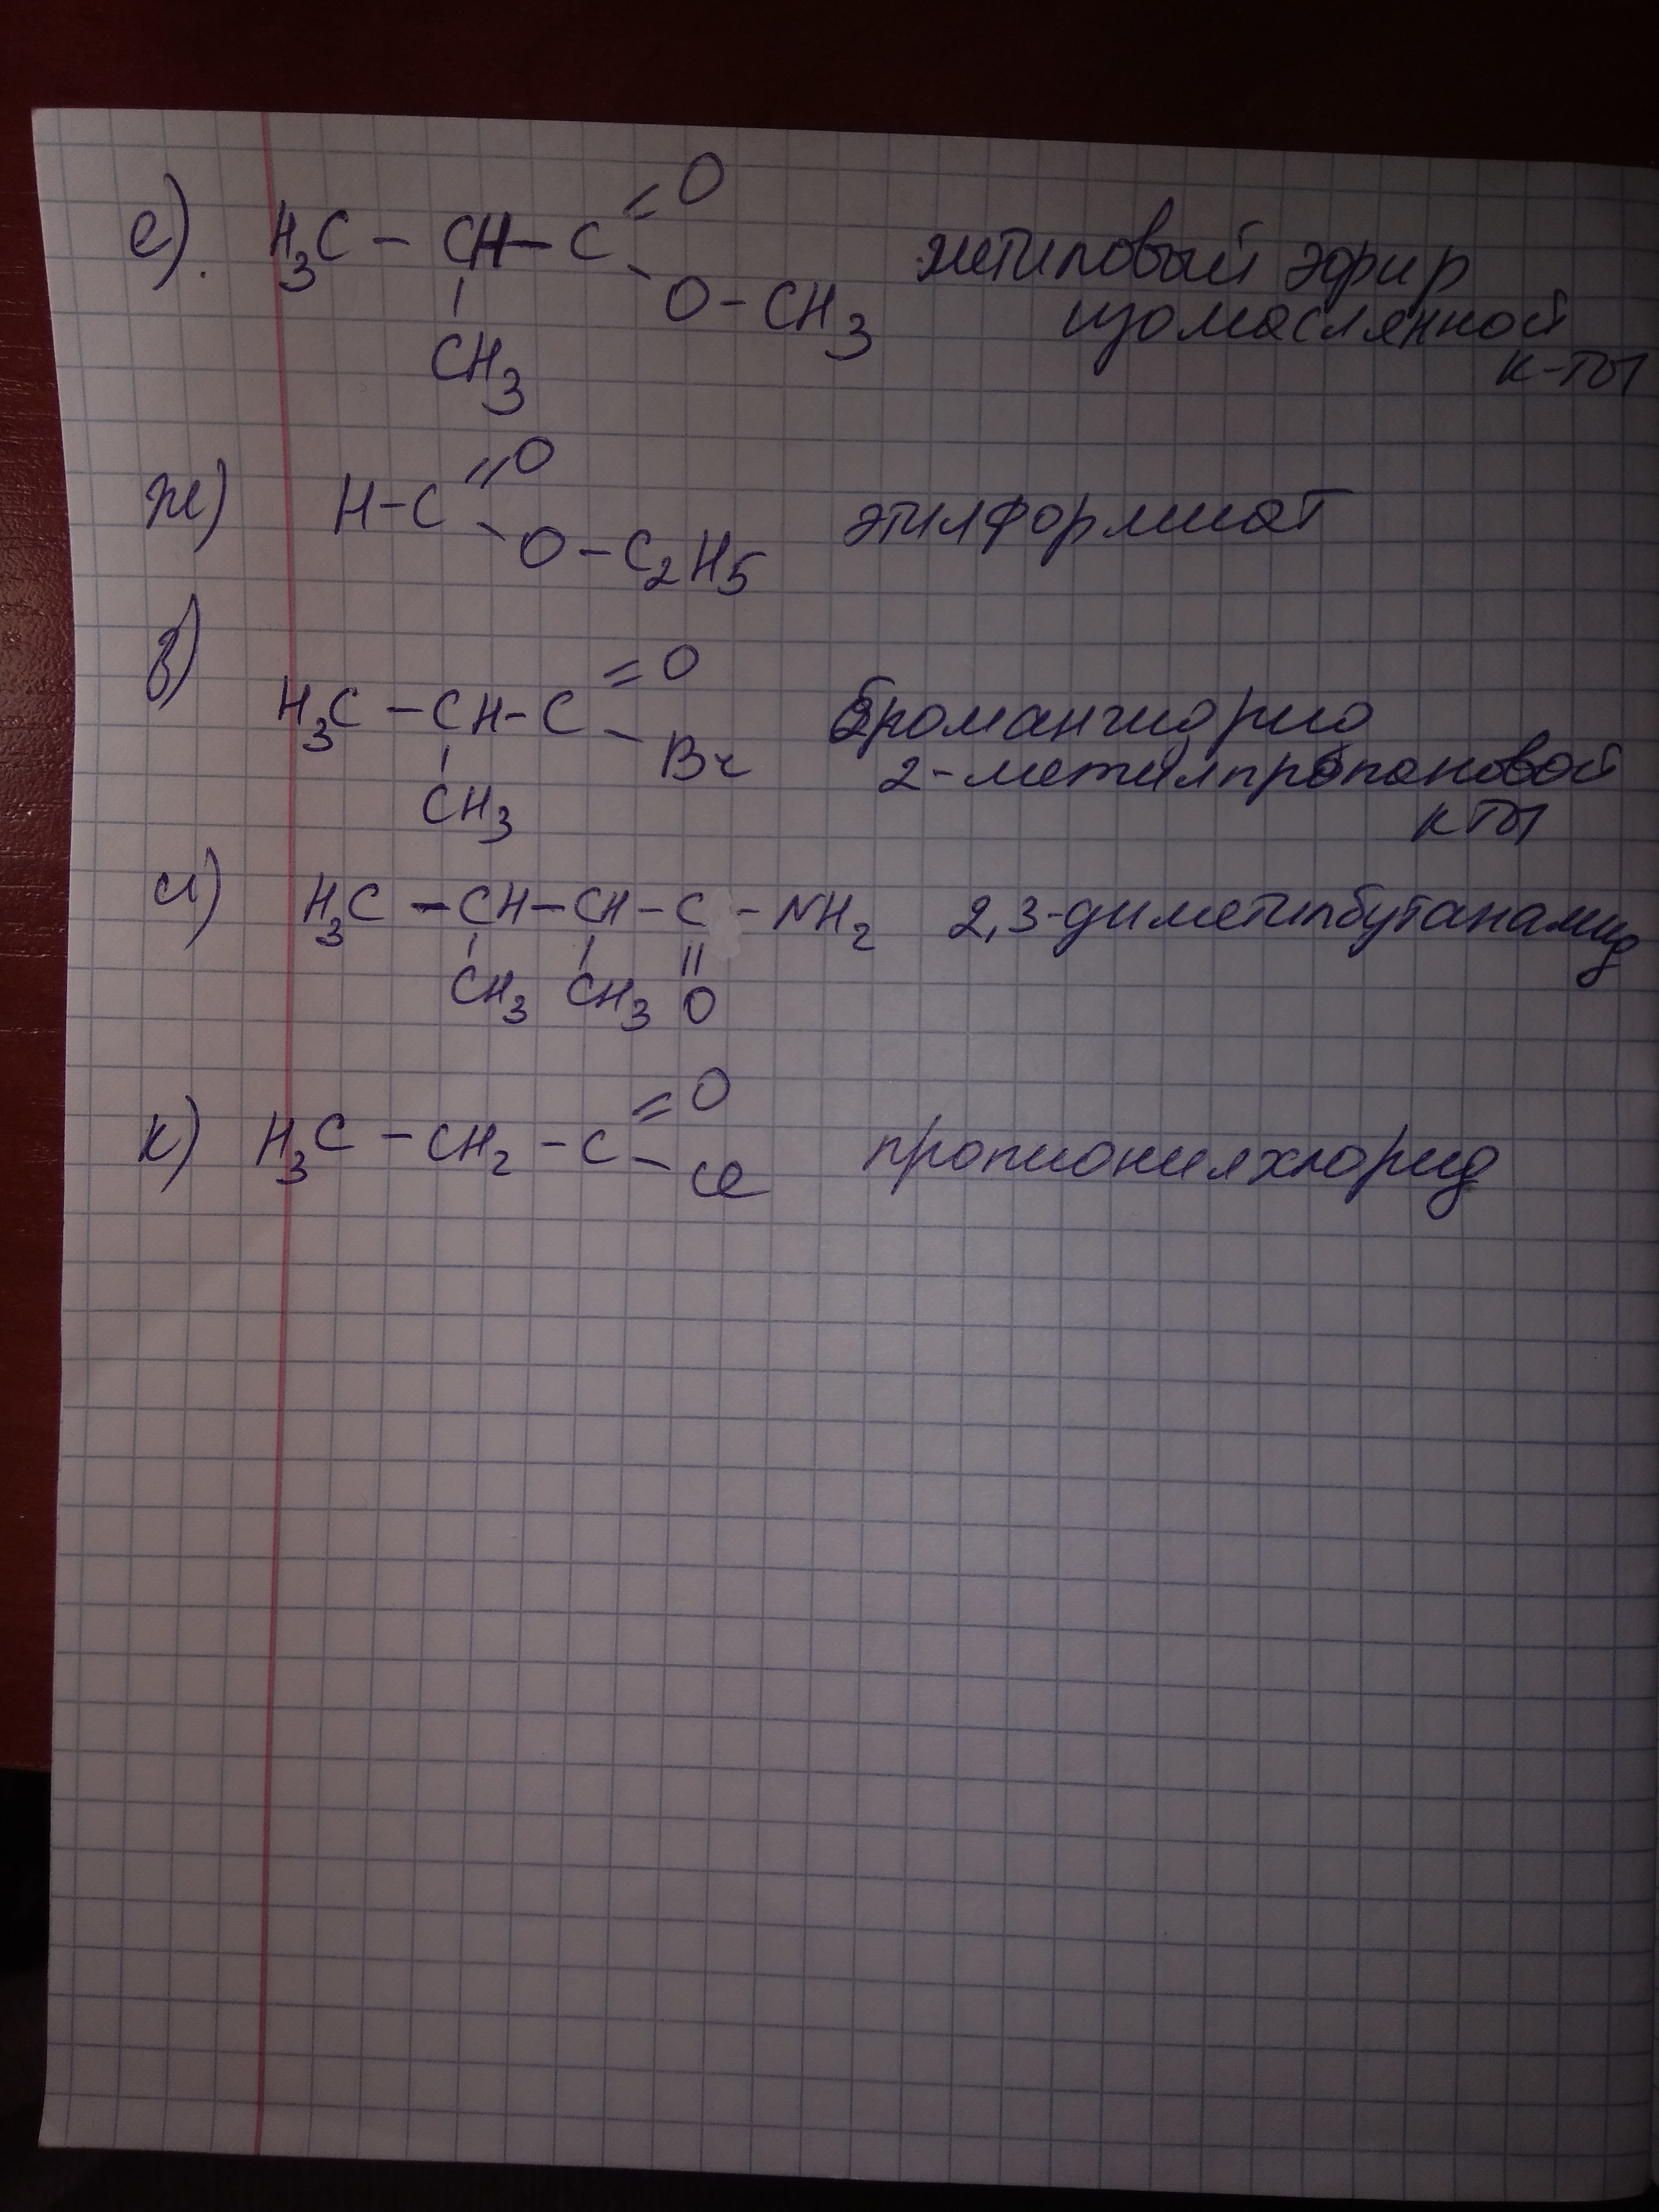 е). H₃C – CH – C =O
O – CH₃
CH₃
метиловый эфир
изомаслянной
к-ты
ж) H – C =O
O – C₂H₅
этилформиат
з)
H₃C – CH – C =O
Br
CH₃
бромангидрид
2-метилпропановой
кты
и) H₃C – CH – CH – C – NH₂ 2,3-диметилбутанамид
CH₃ CH₃ O
к) H₃C – CH₂ – C =O
Cl
пропионилхлорид